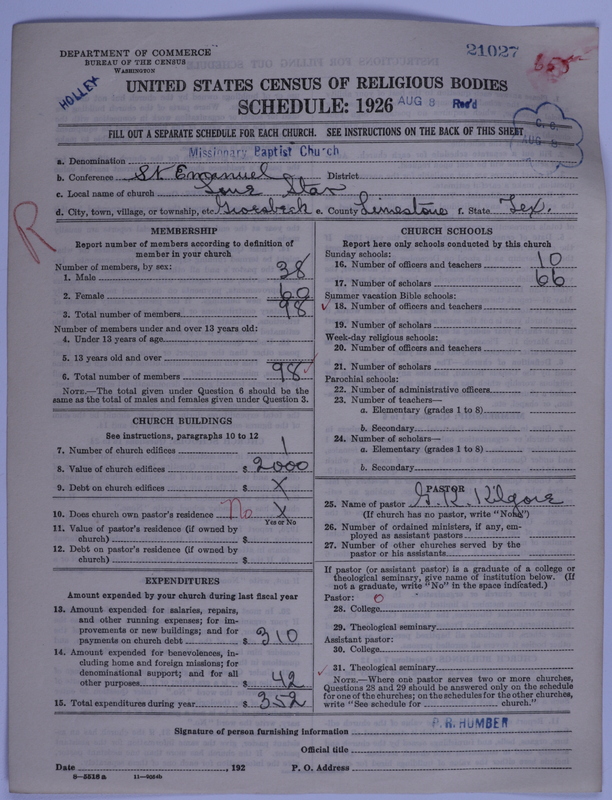 DEPARTMENT OF COMMERCE
BUREAU OF THE CENSUS
WASHINGTON
21027
HOLLEY
UNITED STATES CENSUS OF RELIGIOUS BODIES
SCHEDULE: 1926
AUG 8 Rec'd
FILL OUT A SEPARATE SCHEDULE FOR EACH CHURCH. SEE INSTRUCTIONS ON THE BACK OF THIS SHEET
a. Denomination Missionary Baptist Church
b. Conference St Emanuel District
c. Local name of church Lone Star
d. City, town, village, or township, etc. Groesbeck e. County Limestone f. State Tex.
R
MEMBERSHIP
Report number of members according to definition of member in your church
Number of members, by sex:
1. Male 38
2. Female 60
3. Total number of members 98
Number of members under and over 13 years old:
4. Under 13 years of age
5. 13 years old and over
6. Total number of members 98
NOTE.—The total given under Question 6 should be the same as the total of males and females given under Question 3.
CHURCH BUILDINGS
See instructions, paragraphs 10 to 12
7. Number of church edifices 1
8. Value of church edifices $ 2000
9. Debt on church edifices $ X
10. Does church own pastor's residence No X
Yes or No
11. Value of pastor's residence (if owned by church) $
12. Debt on pastor's residence (if owned by church) $
EXPENDITURES
Amount expended by your church during last fiscal year
13. Amount expended for salaries, repairs, and other running expenses; for improvements or new buildings; and for payments on church debt $ 310
14. Amount expended for benevolences, including home and foreign missions; for denominational support; and for all other purposes $ 42
15. Total expenditures during year $ 352
CHURCH SCHOOLS
Report here only schools conducted by this church
Sunday schools:
16. Number of officers and teachers 10
17. Number of scholars 66
Summer vacation Bible schools:
18. Number of officers and teachers
19. Number of scholars
Week-day religious schools:
20. Number of officers and teachers
21. Number of scholars
Parochial schools:
22. Number of administrative officers
23. Number of teachers—
a. Elementary (grades 1 to 8)
b. Secondary
24. Number of scholars—
a. Elementary (grades 1 to 8)
b. Secondary
PASTOR
25. Name of pastor G. R. Kilgore
(If church has no pastor, write "None")
26. Number of ordained ministers, if any, employed as assistant pastors
27. Number of other churches served by the pastor or his assistants
If pastor (or assistant pastor) is a graduate of a college or theological seminary, give name of institution below. (If not a graduate, write "No" in the space indicated.)
Pastor: 0
28. College
29. Theological seminary
Assistant pastor:
30. College
31. Theological seminary
NOTE.—Where one pastor serves two or more churches, Questions 28 and 29 should be answered only on the schedule for one of the churches; on the schedules for the other churches, write "See schedule for church."
P. R. HUMBER
Signature of person furnishing information
Official title
Date , 192 P. O. Address
8—5518 a 11—9264b